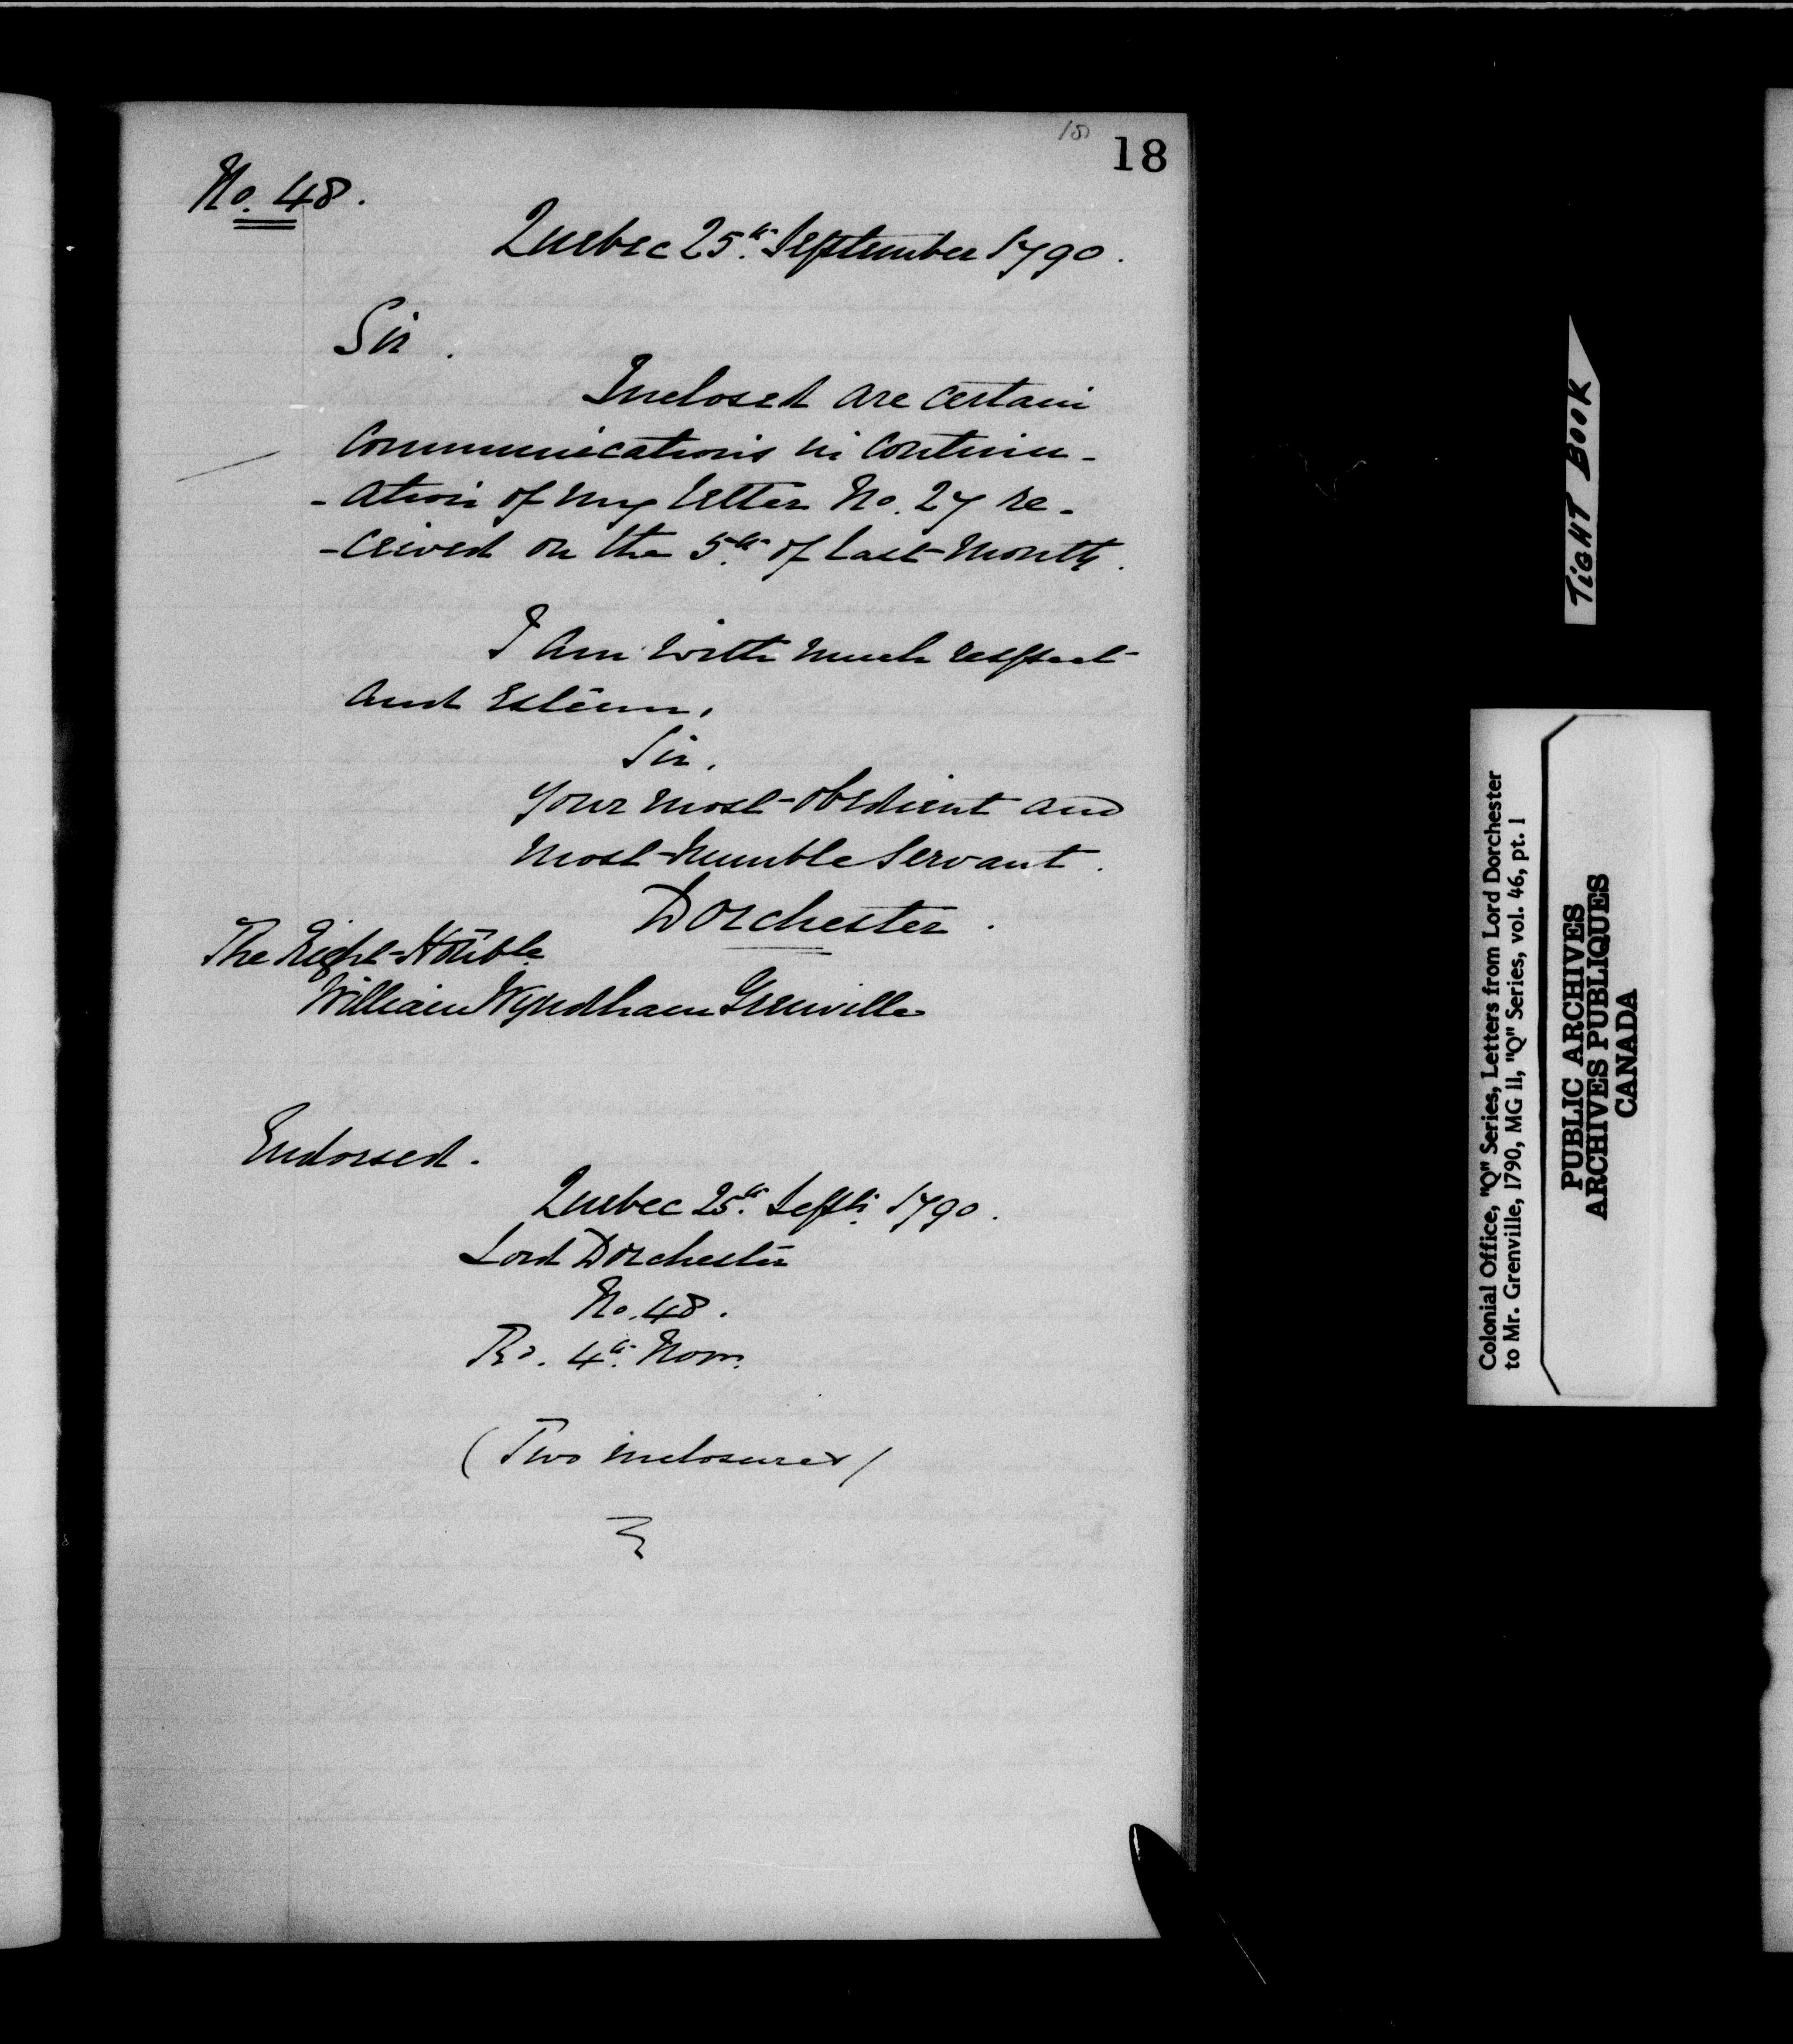 18
No. 48.
Quebec 25th September 1790.
Sir.
Inclosed are certain
Communications in continu-
-ation of my letter No. 27 re-
-ceived on the 5th of last month.
I am with much respect
and Esteem,
Sir,
Your most obedient and
most humble Servant.
Dorchester.
The Right Honble
William Wyndham Grenville
Endorsed.
Quebec 25th Septr 1790.
Lord Dorchester
No. 48.
Rd. 4th Novr.
(Two inclosures)
TIGHT BOOK
Colonial Office, "Q" Series, Letters from Lord Dorchester
to Mr. Grenville, 1790, MG 11, "Q" Series, vol. 46, pt. 1
PUBLIC ARCHIVES
ARCHIVES PUBLIQUES
CANADA